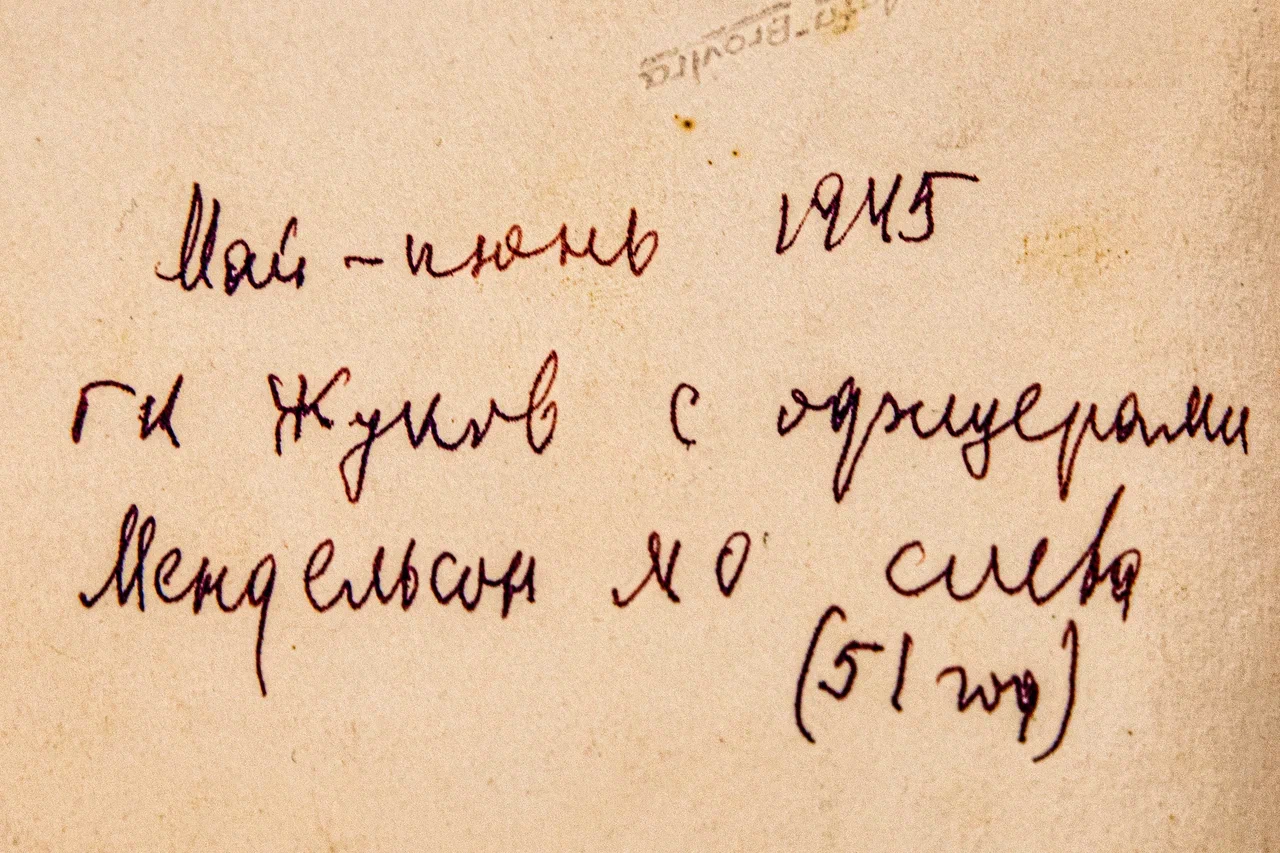 Май - июнь 1945
ГК Жуков с офицерами
Мендельсон МО слева
(51 год)